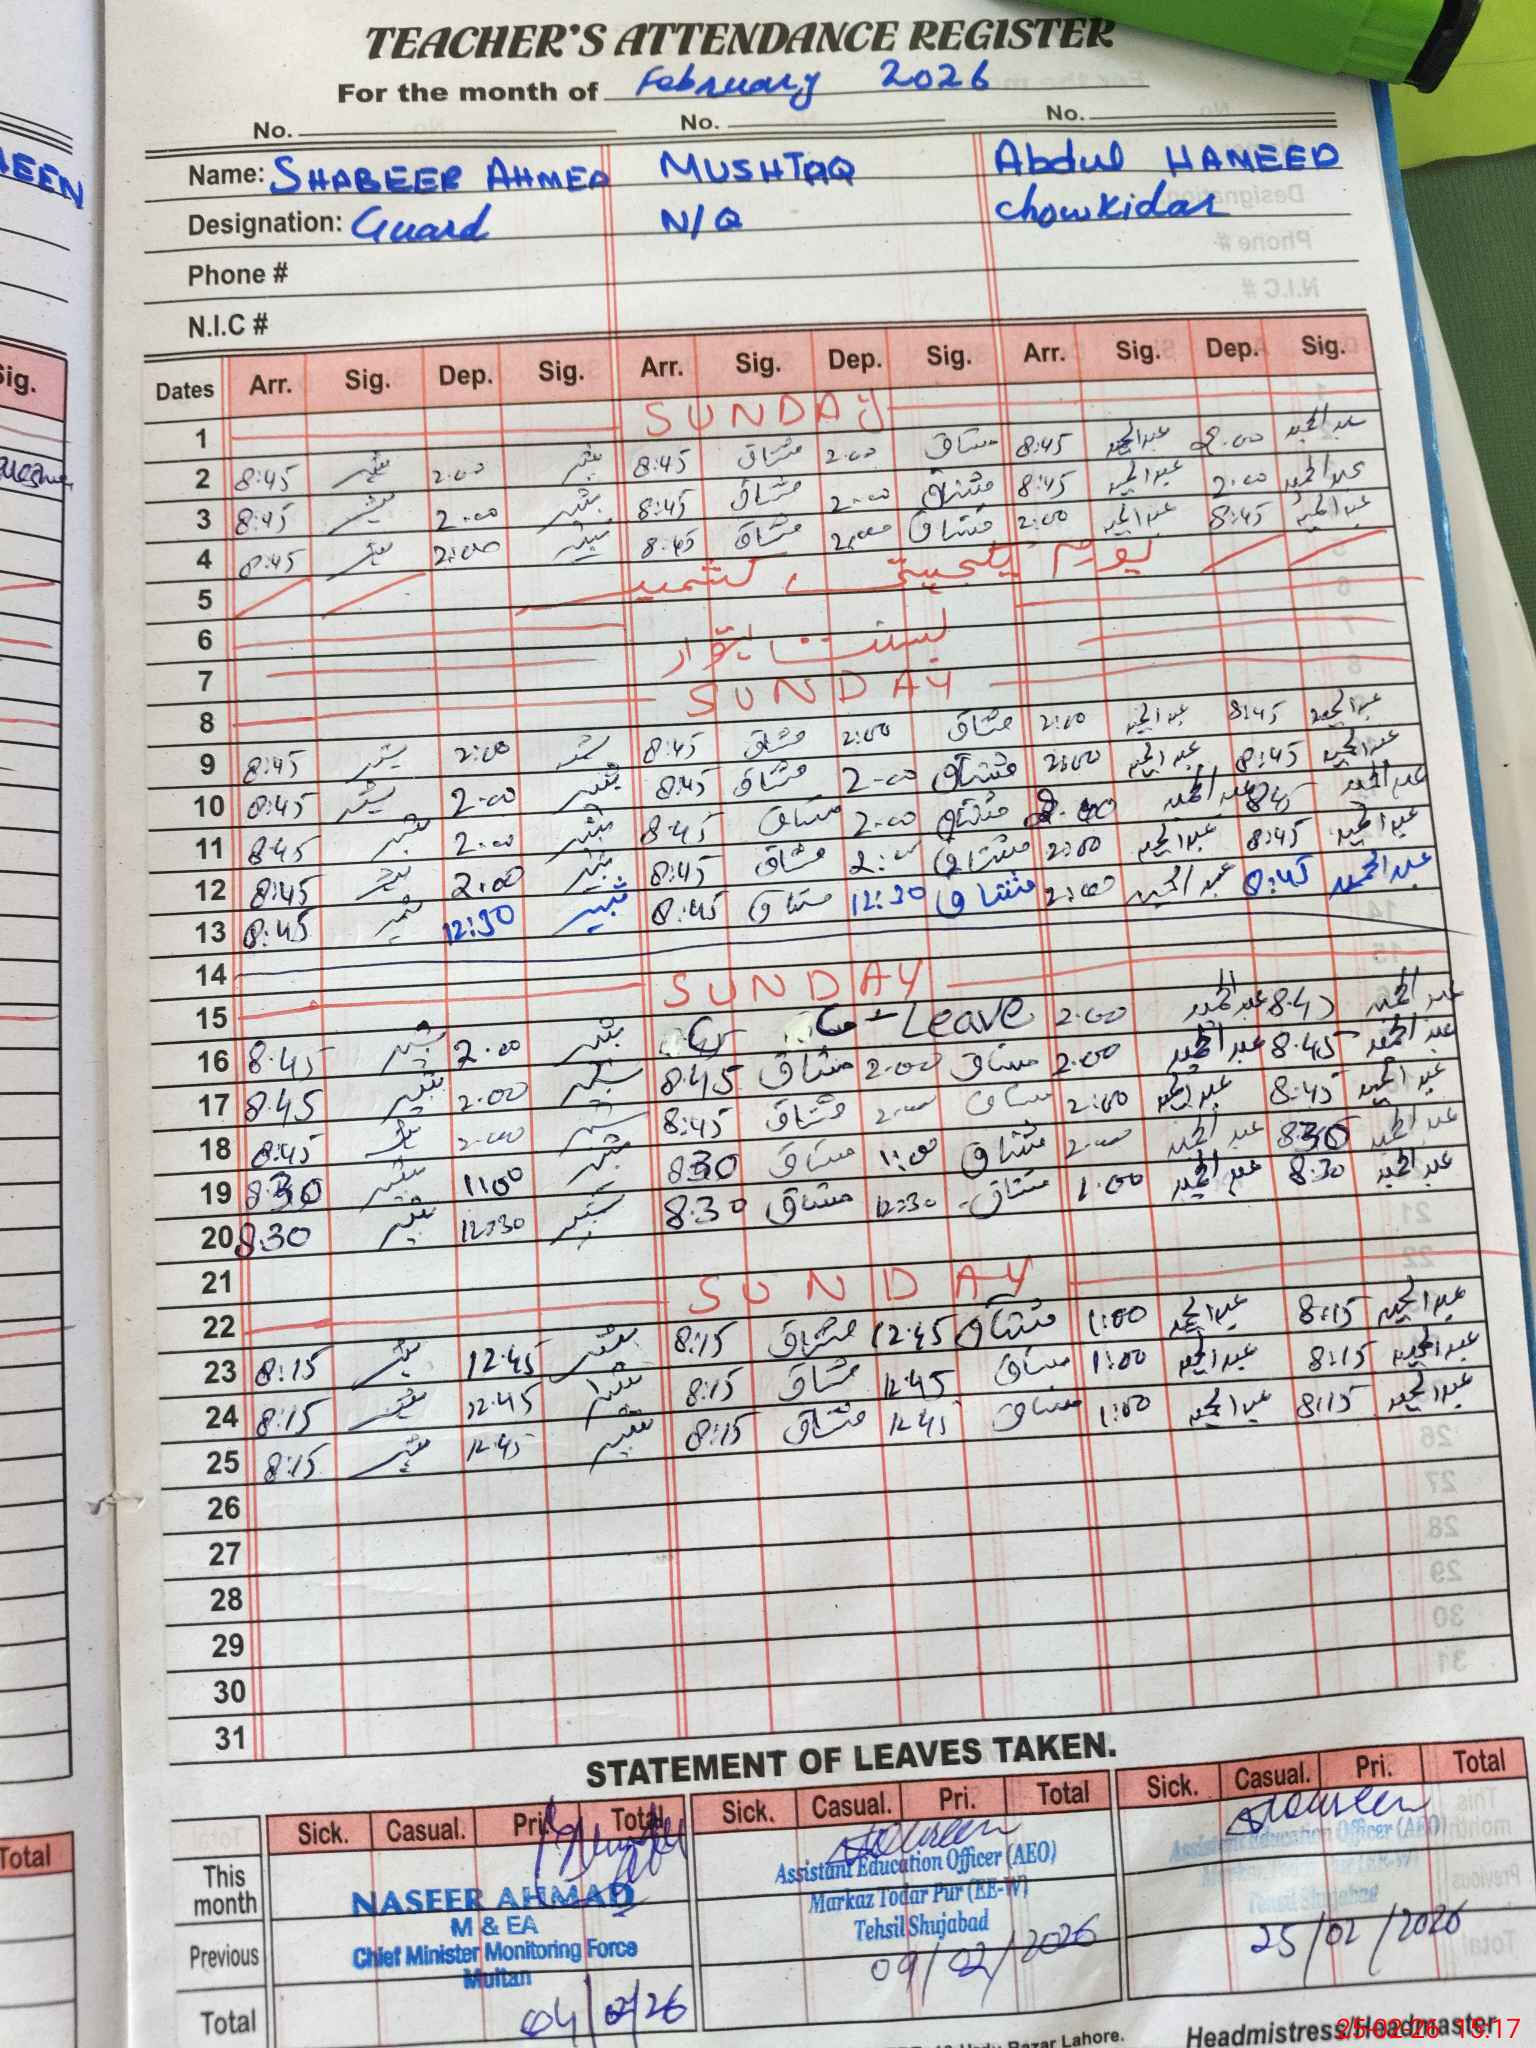 TEACHER'S ATTENDANCE REGISTER
For the month of February 2026
No. No. No.
Name: SHABEER AHMED MUSHTAQ Abdul HAMEED
Designation: Guard N/Q Chowkidar
Phone #
N.I.C #
Dates Arr. Sig. Dep. Sig. Arr. Sig. Dep. Sig. Arr. Sig. Dep. Sig.
1 SUNDAY
2 8:45 شبیر 2:00 شبیر 8:45 مشتاق 2:00 مشتاق 8:45 عبدالحمید 2:00 عبدالحمید
3 8:45 شبیر 2:00 شبیر 8:45 مشتاق 2:00 مشتاق 8:45 عبدالحمید 2:00 عبدالحمید
4 8:45 شبیر 2:00 شبیر 8:45 مشتاق 2:00 مشتاق 2:00 عبدالحمید 8:45 عبدالحمید
5 یوم یکجہتی کشمیر
6
7 بسنت تہوار
8 SUNDAY
9 8:45 شبیر 2:00 شبیر 8:45 مشتاق 2:00 مشتاق 2:00 عبدالحمید 8:45 عبدالحمید
10 8:45 شبیر 2:00 شبیر 8:45 مشتاق 2:00 مشتاق 2:00 عبدالحمید 8:45 عبدالحمید
11 8:45 شبیر 2:00 شبیر 8:45 مشتاق 2:00 مشتاق 2:00 عبدالحمید 8:45 عبدالحمید
12 8:45 شبیر 2:00 شبیر 8:45 مشتاق 2:00 مشتاق 2:00 عبدالحمید 8:45 عبدالحمید
13 8:45 شبیر 12:30 شبیر 8:45 مشتاق 12:30 مشتاق 2:00 عبدالحمید 8:45 عبدالحمید
14
15 SUNDAY
16 8:45 شبیر 2:00 شبیر Leave 2:00 عبدالحمید 8:45 عبدالحمید
17 8:45 شبیر 2:00 شبیر 8:45 مشتاق 2:00 مشتاق 2:00 عبدالحمید 8:45 عبدالحمید
18 8:45 شبیر 2:00 شبیر 8:45 مشتاق 2:00 مشتاق 2:00 عبدالحمید 8:45 عبدالحمید
19 8:30 شبیر 1:00 شبیر 8:30 مشتاق 1:00 مشتاق 2:00 عبدالحمید 8:30 عبدالحمید
20 8:30 شبیر 12:30 شبیر 8:30 مشتاق 12:30 مشتاق 1:00 عبدالحمید 8:30 عبدالحمید
21
22 SUNDAY
23 8:15 شبیر 12:45 شبیر 8:15 مشتاق 12:45 مشتاق 1:00 عبدالحمید 8:15 عبدالحمید
24 8:15 شبیر 12:45 شبیر 8:15 مشتاق 12:45 مشتاق 1:00 عبدالحمید 8:15 عبدالحمید
25 8:15 شبیر 12:45 شبیر 8:15 مشتاق 12:45 مشتاق 1:00 عبدالحمید 8:15 عبدالحمید
26
27
28
29
30
31
STATEMENT OF LEAVES TAKEN.
Sick. Casual. Pri. Total Sick. Casual. Pri. Total Sick. Casual. Pri. Total
This month
Previous
Total
NASEER AHMAD
M & EA
Chief Minister Monitoring Force
Multan
04/02/26
Assistant Education Officer (AEO)
Markaz Todar Pur (EE-W)
Tehsil Shujabad
09/02/2026
Assistant Education Officer (AEO)
Markaz Todar Pur (EE-W)
Tehsil Shujabad
25/02/2026
Urdu Bazar Lahore.
Headmistress/Headmaster
25-02-26 15:17